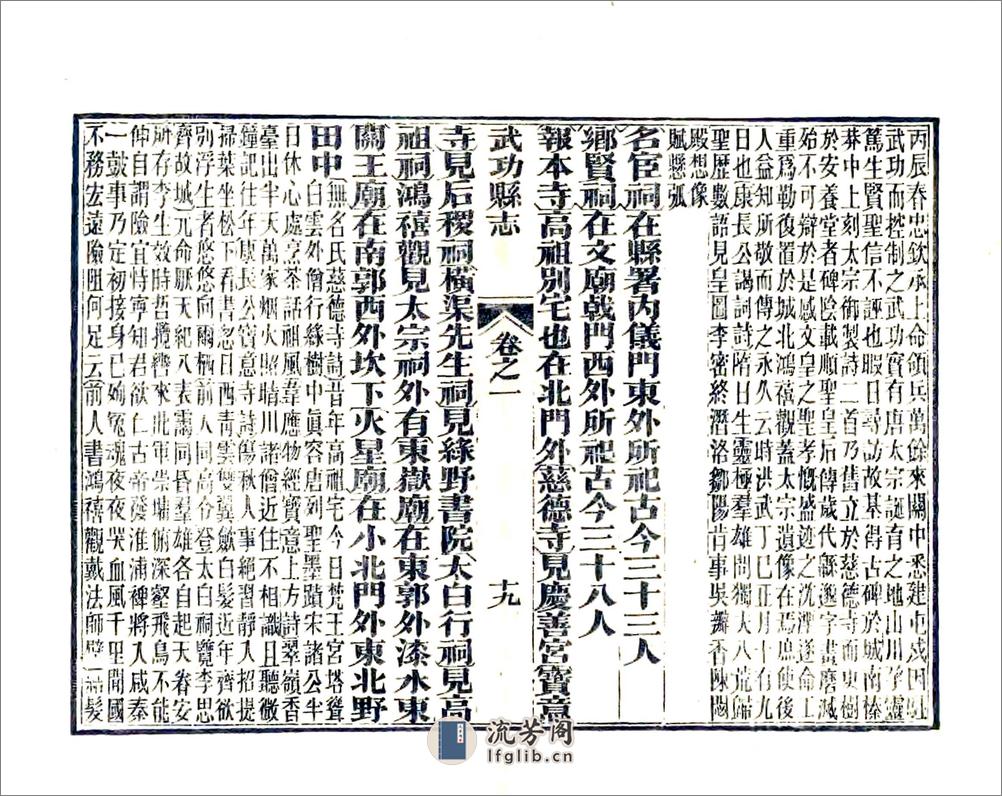 丙辰春忠欽承上命領兵萬餘來關中悉建屯戍因駐
武功而控制之武功實有唐太宗誕育之地山川孕靈
篤生賢聖信不誣也暇日尋訪故基得古碑於城南榛
莽中上刻太宗御製詩二首乃舊立於慈德寺而東樹
於安養堂者碑陰載順聖皇后傳歲代縣邈字畫磨滅
殆不可辯於是感聖之孝慨盛迹之沈滯遂命工
重爲勒後置於城北鴻禧觀蓋太宗遺像在焉庶使後
人益知所敬而傳之永久云時洪武丁巳正月十有九
日也康長公謁祠詩隋日生靈極羣雄問獨夫八荒歸
聖歷數語見皇圖李密終潛洛鄒陽肯事吳瓣香陳
殿想像
賦縣弧
名宦祠在縣署內儀門東外所祀古今三十三人
鄉賢祠在文廟戟門西外所祀古今三十八人
報本寺高祖別宅也在北門外慈德寺見慶善宮寶意
武功縣志
卷之一
十九
寺見后稷祠橫渠先生祠見綠野書院太白行祠見高
祖祠鴻禧觀見太宗祠外有東嶽廟在東郭外漆水東
關王廟在南郭西外坎下火星廟在小北門外東北野
田中無名氏慈德寺詩昔年高祖宅今日梵王宮塔聳
白雲外僧行綠樹中眞容唐列聖墨蹟宋諸公半
日休心處烹茶話祖風韋應物經寶意上方詩翠嶺香
臺出半天萬家烟火照晴川諸僧近住不相識且聽微
鐘記往年康長公寶意寺詩傷秋人事絕習靜入招提
掃葉坐松下看書忽日西靑雲雙翼歛白髮近年齊欲
別浮生者悠悠向爾栖前人同高令登太白祠覽李思
齊故城元命厭天紀八表靄同昏羣雄各自起天眷安
所存李生效時哲攬轡來此軍崇墉俯深壑飛鳥不能
伸自謂險宜恃寧知君欲仁古帝廢淮浦裨將入咸秦
一鼓事乃定初接身已殉冤魂夜夜哭血風千里聞國
不務宏遠險阻何足云前人書鴻禧觀戴法師壁一髮
流芳阁
lfglib.cn